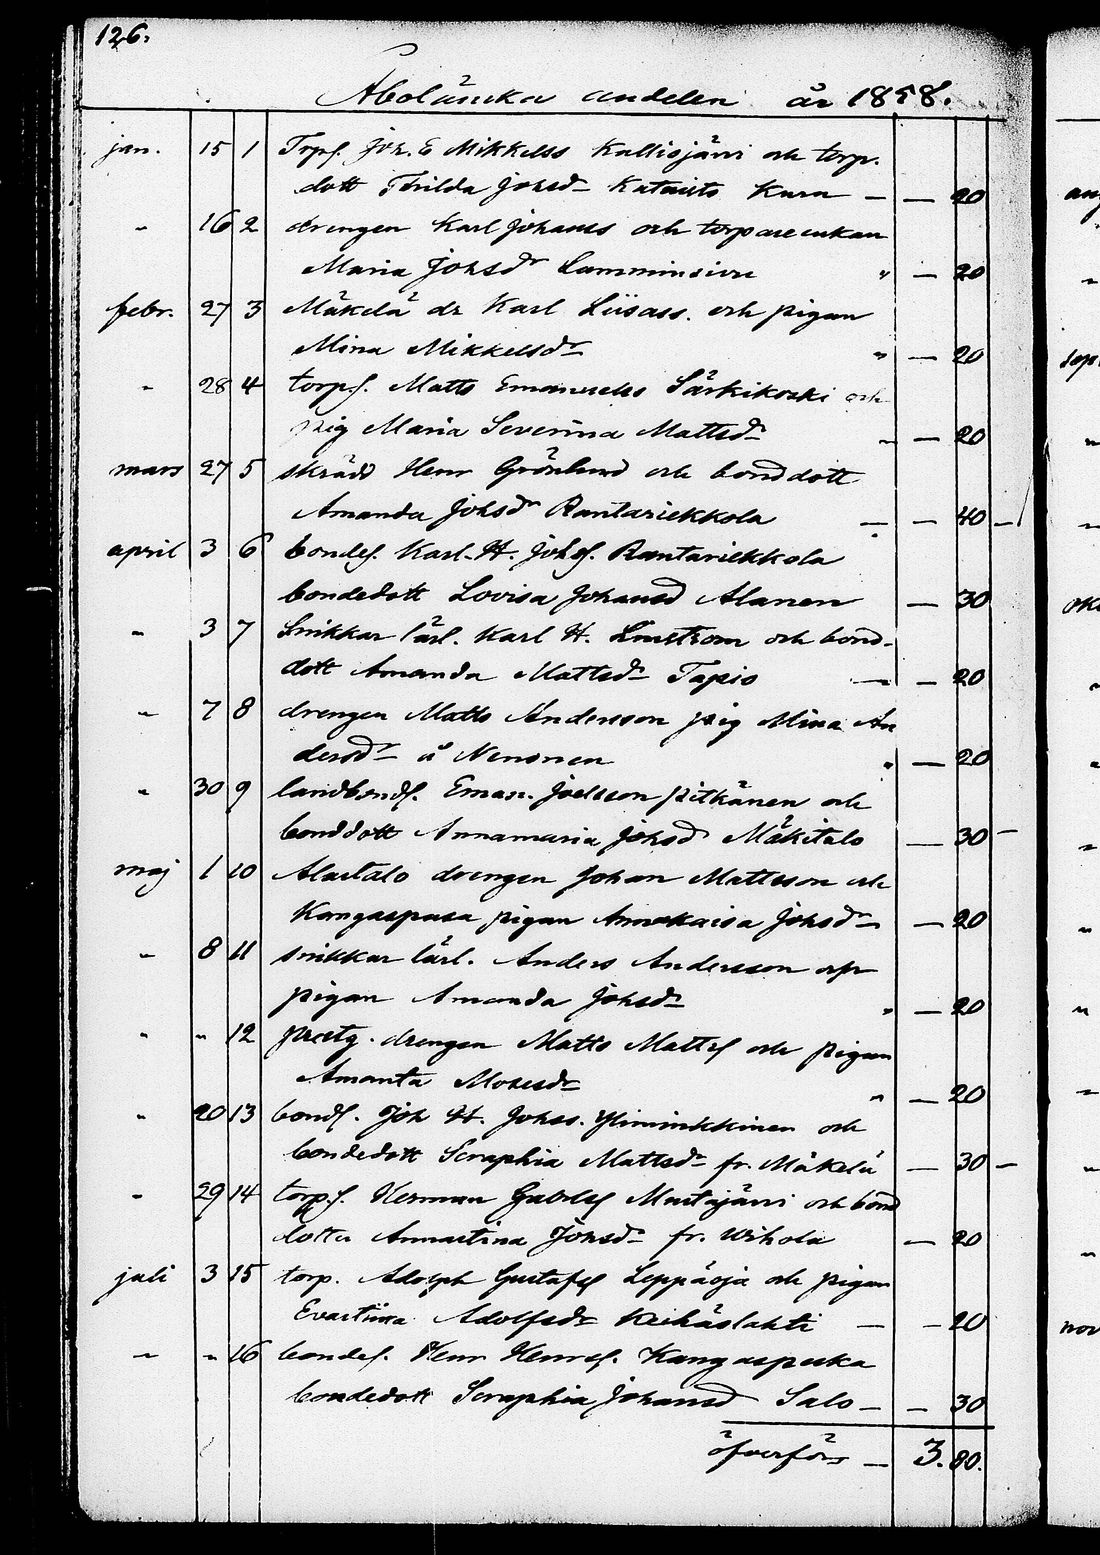 126.
Åboländska andelen år 1858.
jan. 15 1 Torps. Joh. E Mikkelss Kallisjärvi och torp.
dott Thilda Johsdr Katavisto Kura — — 20
" 16 2 drengen Karl Johanss och torpareenkan
Maria Johsdr Lamminsivu " — 20
febr. 27 3 Mäkelä dr Karl Liisass. och pigan
Mina Mikkelsdr " — 20
" 28 4 torps. Matts Emanuelss Särkikoski och
pig Maria Severina Mattsdr " — 20
mars 27 5 skrädd Henr Grönlund och bonddott
Amanda Johsdr Rantariekkola — — 40 —
april 3 6 bondes. Karl. H. Johss. Rantariekkola
bondedott Lovisa Johansd Alanen — 30
" 3 7 Snikkar lärl. Karl H. Linström och bond-
dott Amanda Mattsdr Tapio — — 20
" 7 8 drengen Matts Andersson pig Mina An
dersdr å Nenonen " — 20
" 30 9 landbonds. Eman. Joelsson Pitkänen och
bonddott Annamaria Johsd Mäkitalo — 30 —
maj 1 10 Alastalo drengen Johan Mattsson och
Kangaspasa pigan Annakaisa Johsdr — — 20
" 8 11 snikkar lärl. Anders Andersson och
pigan Amanda Johsdr " — 20
" " 12 prestg. drengen Matts Matts och pigan
Amanta Mosesdr " — 20
" 20 13 bonds. Joh H. Johss. Yliminkkinen och
bondedott Seraphia Mattsdr fr. Mäkelä — 30 —
" 29 14 torps. Herman Gabrels Mustajärvi och bond
dotter Annastina Johsdr fr. Wihola — 20
juli 3 15 torp. Adolph Gustafss Leppäoja och pigan
Evastiina Adolfsdr Keihäslahti — — 20
" " 16 bondes. Henr Henrss. Kangaspuska
bondedott Seraphia Johansd Salo — — 30
öfverförs — 3.80.